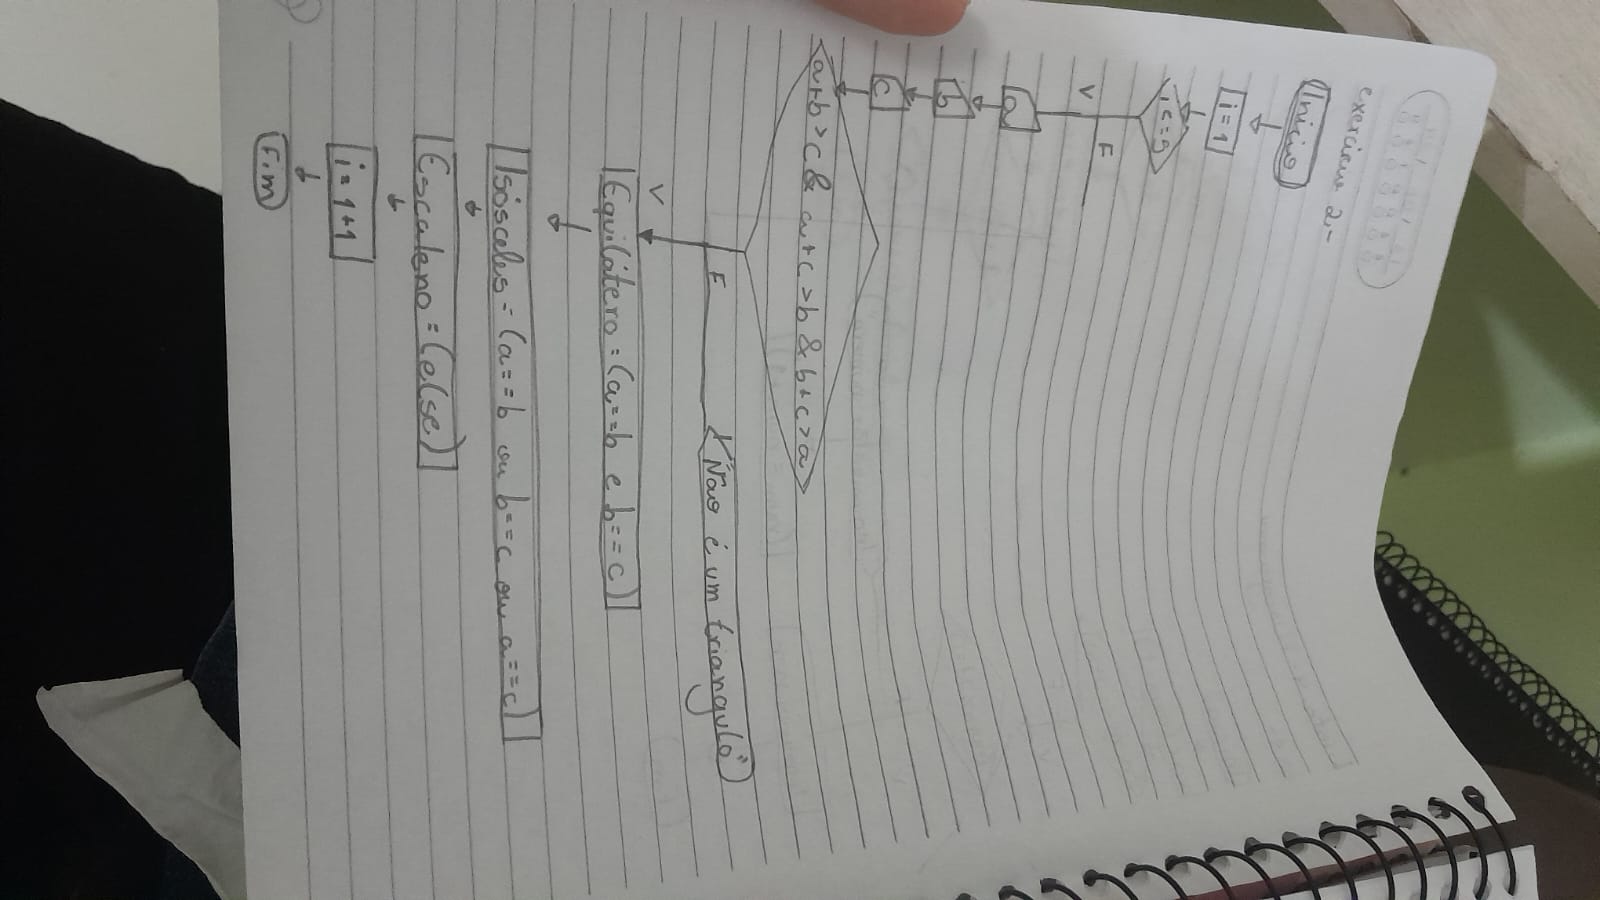 exercicio 2-
Inicio
i=1
i<=5
V
F
a
b
c
a+b>c & a+c>b & b+c>a
F
"Nao é um triangulo"
V
Equilátero = (a==b e b==c)
Isósceles = (a==b ou b==c ou a==c)
Escaleno = (else)
i=1+1
Fim